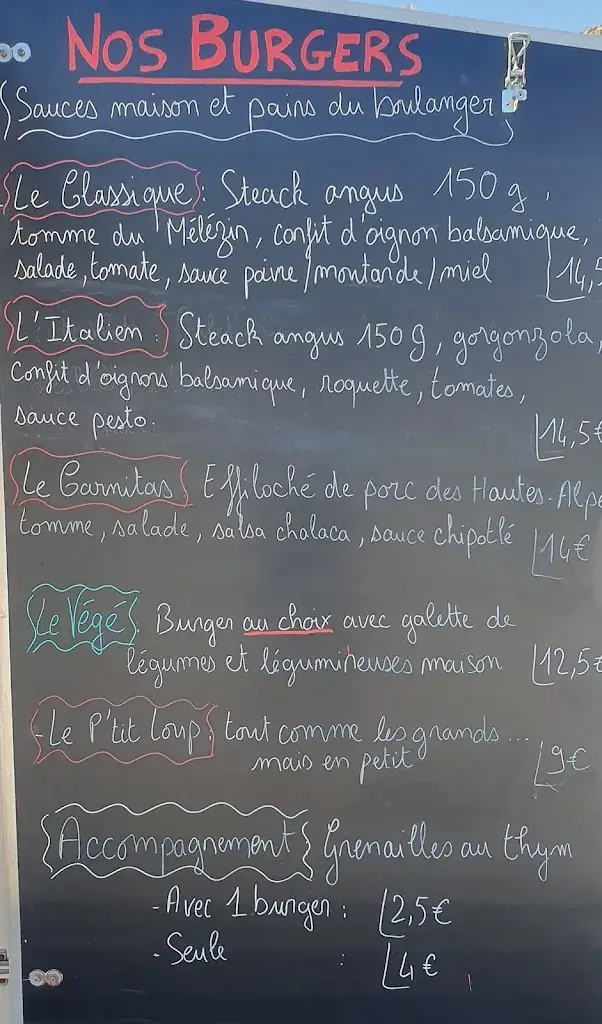 NOS BURGERS
Sauces maison et pains du boulanger
Le Classique : Steack angus 150 g,
tomme du Mélézin, confit d'oignon balsamique,
salade, tomate, sauce poivre/moutarde/miel 14,5
L'Italien : Steack angus 150 g, gorgonzola,
Confit d'oignons balsamique, roquette, tomates,
sauce pesto. 14,5€
Le Carnitas Effiloché de porc des Hautes-Alpe
tomme, salade, salsa chalaca, sauce chipotlé 14€
Le Végé Burger au choix avec galette de
légumes et légumineuses maison 12,5€
-Le P'tit Loup : tout comme les grands...
mais en petit 9€
Accompagnement Grenailles au thym
- Avec 1 burger : 2,5€
- Seule : 4€